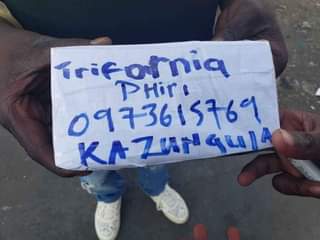 Trifornia
DHiri
0973615769
KAZUNGULA